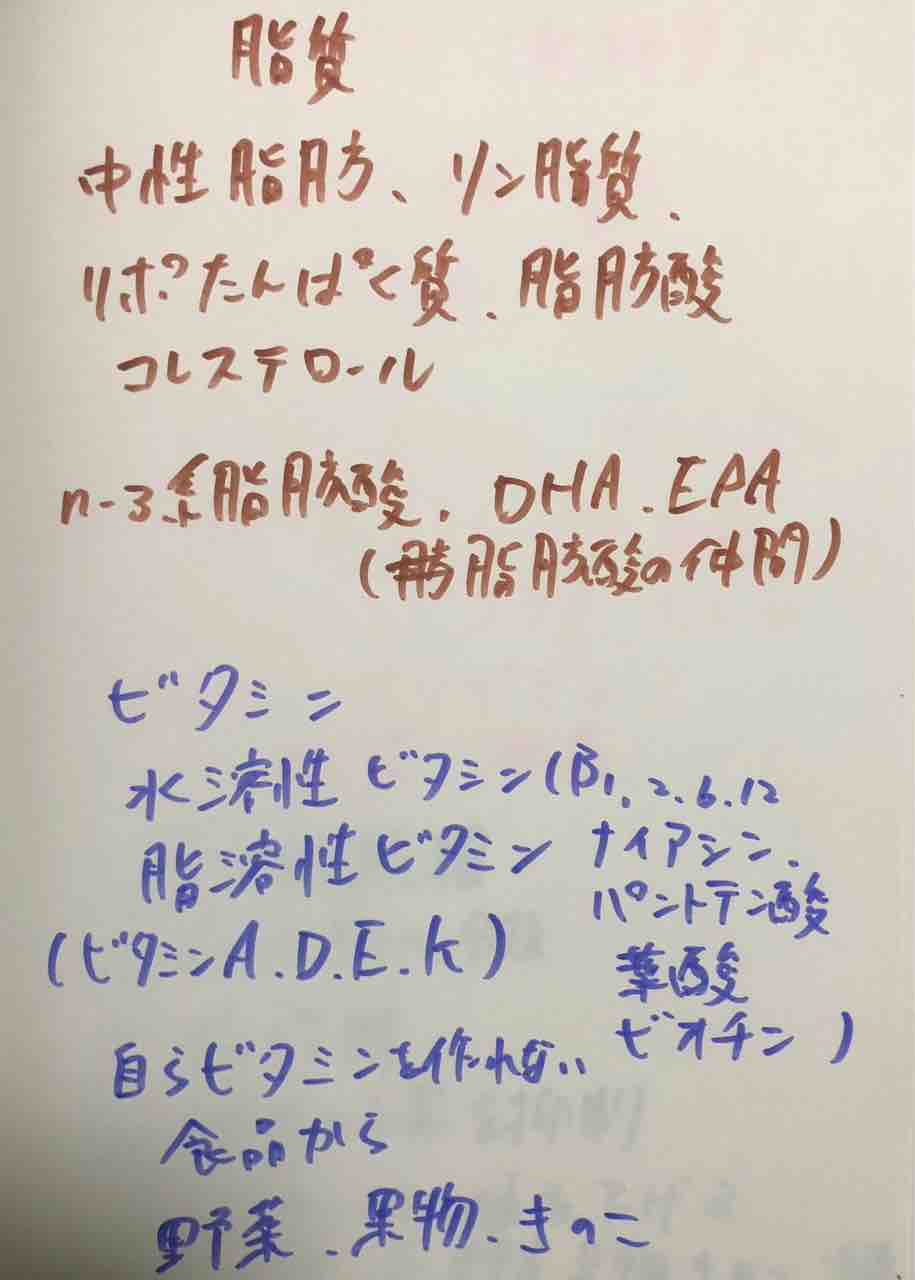 脂質
中性脂肪、リン脂質、
リポたんぱく質、脂肪酸
コレステロール
n-3系脂肪酸、DHA、EPA
(脂肪酸の仲間)
ビタミン
水溶性ビタミン(B1、2、6、12
ナイアシン、
パントテン酸
葉酸
ビオチン)
脂溶性ビタミン
(ビタミンA、D、E、K)
自らビタミンを作れない
食品から
野菜、果物、きのこ